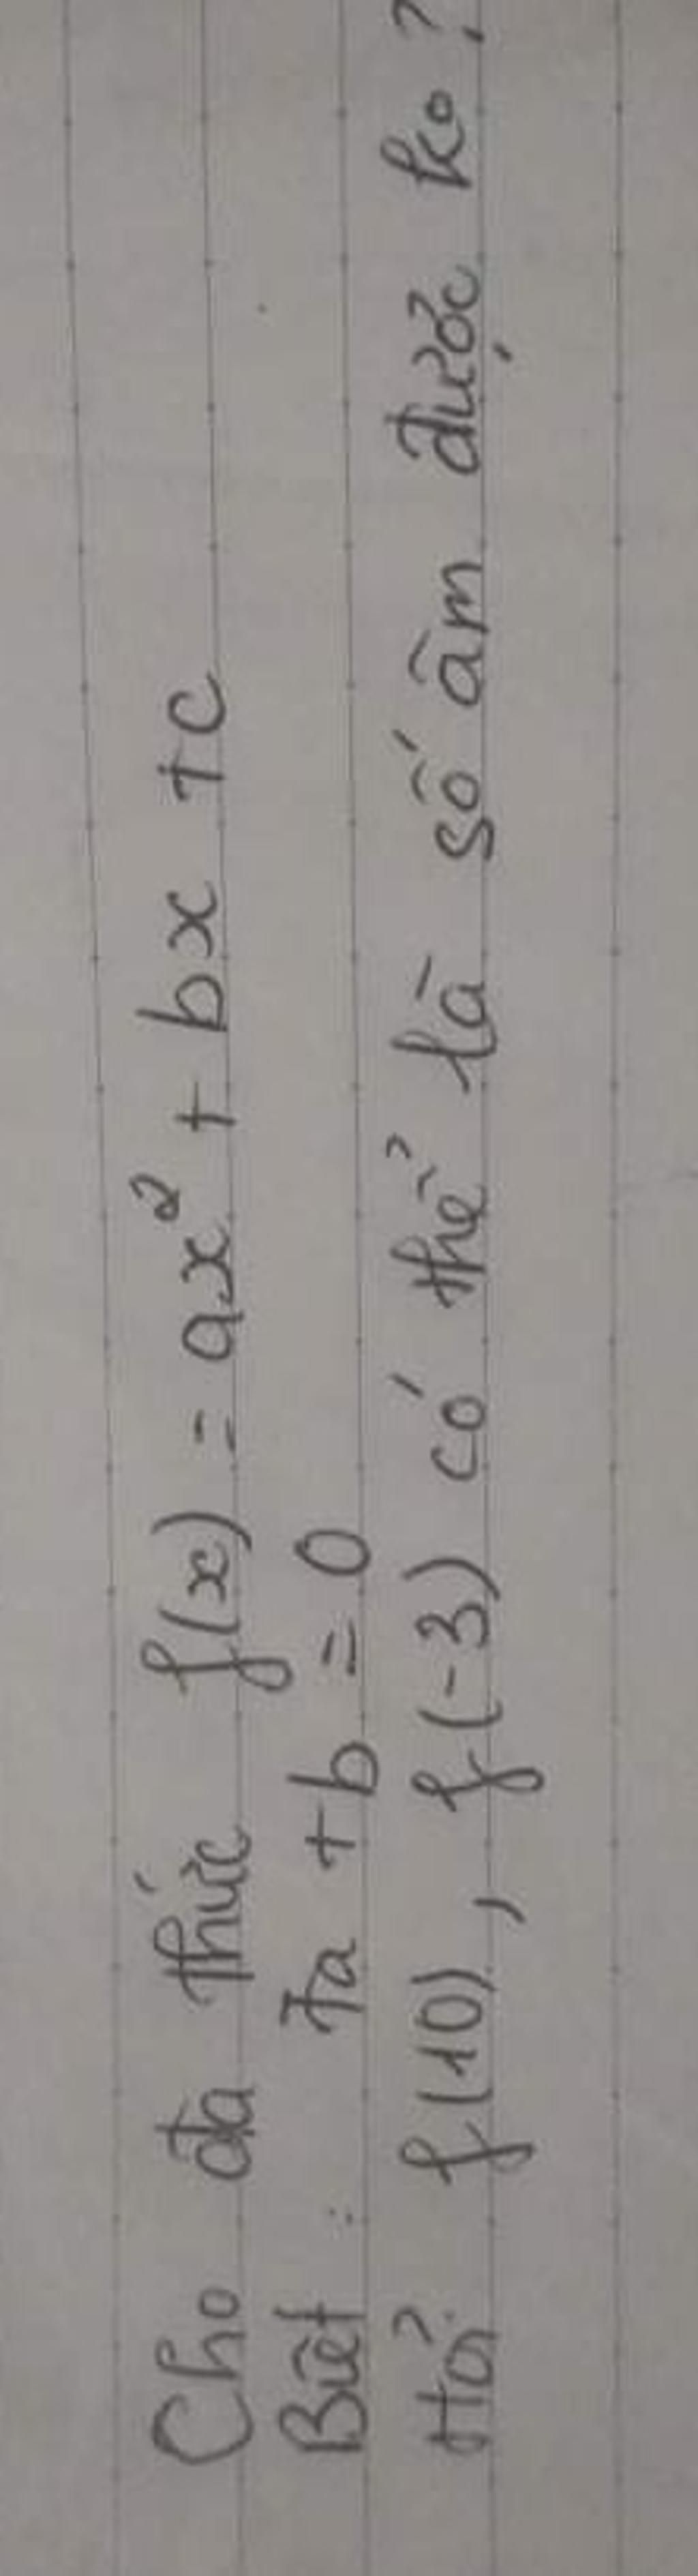 Cho đa thức f(x) = ax² + bx + c
Biết : 7a + b = 0
Hỏi f(10), f(-3) có thể là số âm được ko?